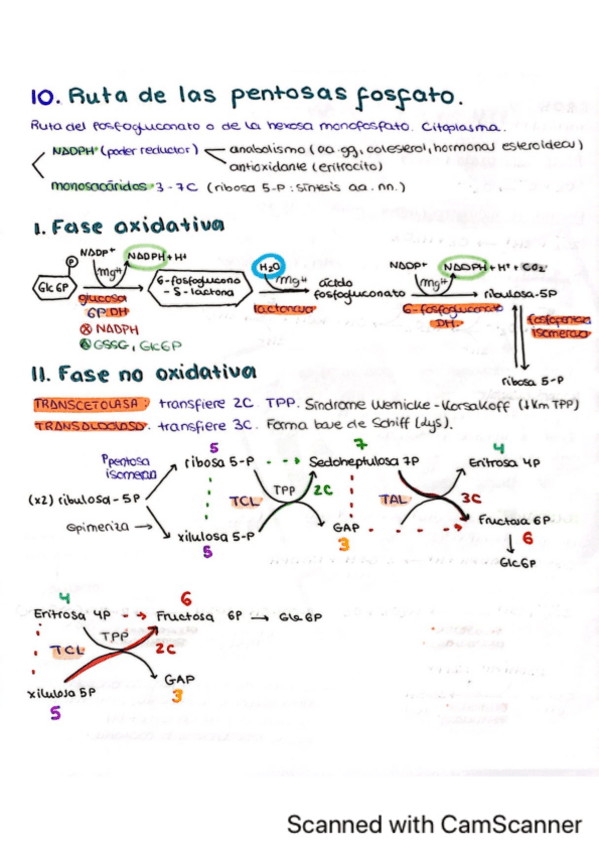 10. Ruta de las pentosas fosfato.
Ruta del fosfogluconato o de la hexosa monofosfato. Citoplasma.
NADPH (poder reductor) anabolismo (aa.gg, colesterol, hormonas esteroideas)
antioxidante (eritrocito)
monosacáridos 3-7C (ribosa 5-P: síntesis aa.nn.)
I. Fase oxidativa
P NADP+ NADPH+H+ H2O NADP+ NADPH+H+ + CO2
Mg++ Mg++ Mg++
Glc 6P 6-fosfoglucono -δ-lactona ácido fosfogluconato ribulosa-5P
glucosa 6P DH lactonasa 6-fosfogluconato DH. fosfopentosa isomerasa
⊗ NADPH
⊕ GSSG, Glc6P
ribosa 5-P
II. Fase no oxidativa
TRANSCETOLASA: transfiere 2C. TPP. Síndrome Wernicke-Korsakoff (↓Km TPP)
TRANSALDOLASA: transfiere 3C. Forma base de Schiff (Lys).
5 7 4
Ppentosa isomerasa ribosa 5-P Sedoheptulosa 7P Eritrosa 4P
(x2) ribulosa-5P TCL TPP 2C TAL 3C
epimeriza xilulosa 5-P GAP Fructosa 6P
5 3 6
Glc6P
4 6
Eritrosa 4P Fructosa 6P → Glc 6P
TPP
TCL 2C
GAP
xilulosa 5P 3
5
Scanned with CamScanner